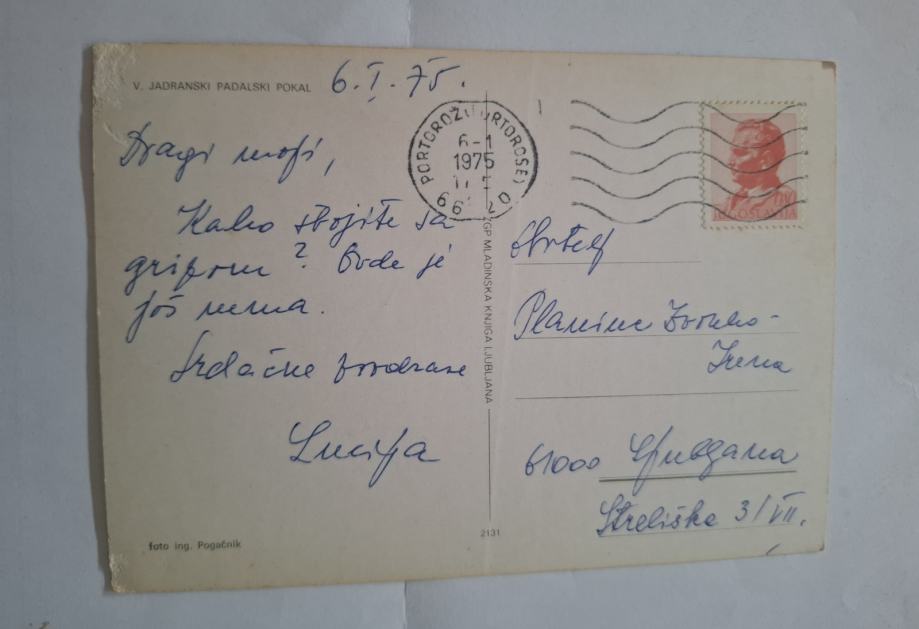 V. JADRANSKI PADALSKI POKAL
6.I.75.
Dragi moji,
Kako stojite sa
gripom? Ovde je
još nema.
Srdačne pozdrave
Lucija
foto ing. Pogačnik
PORTOROŽ (PORTOROSE)
6-1
1975
66320
JUGOSLAVIJA
ZGP MLADINSKA KNJIGA LJUBLJANA
2131
Obitelj
Planinc Zvonko-
Irena
61000 Ljubljana
Streliška 3/VII.